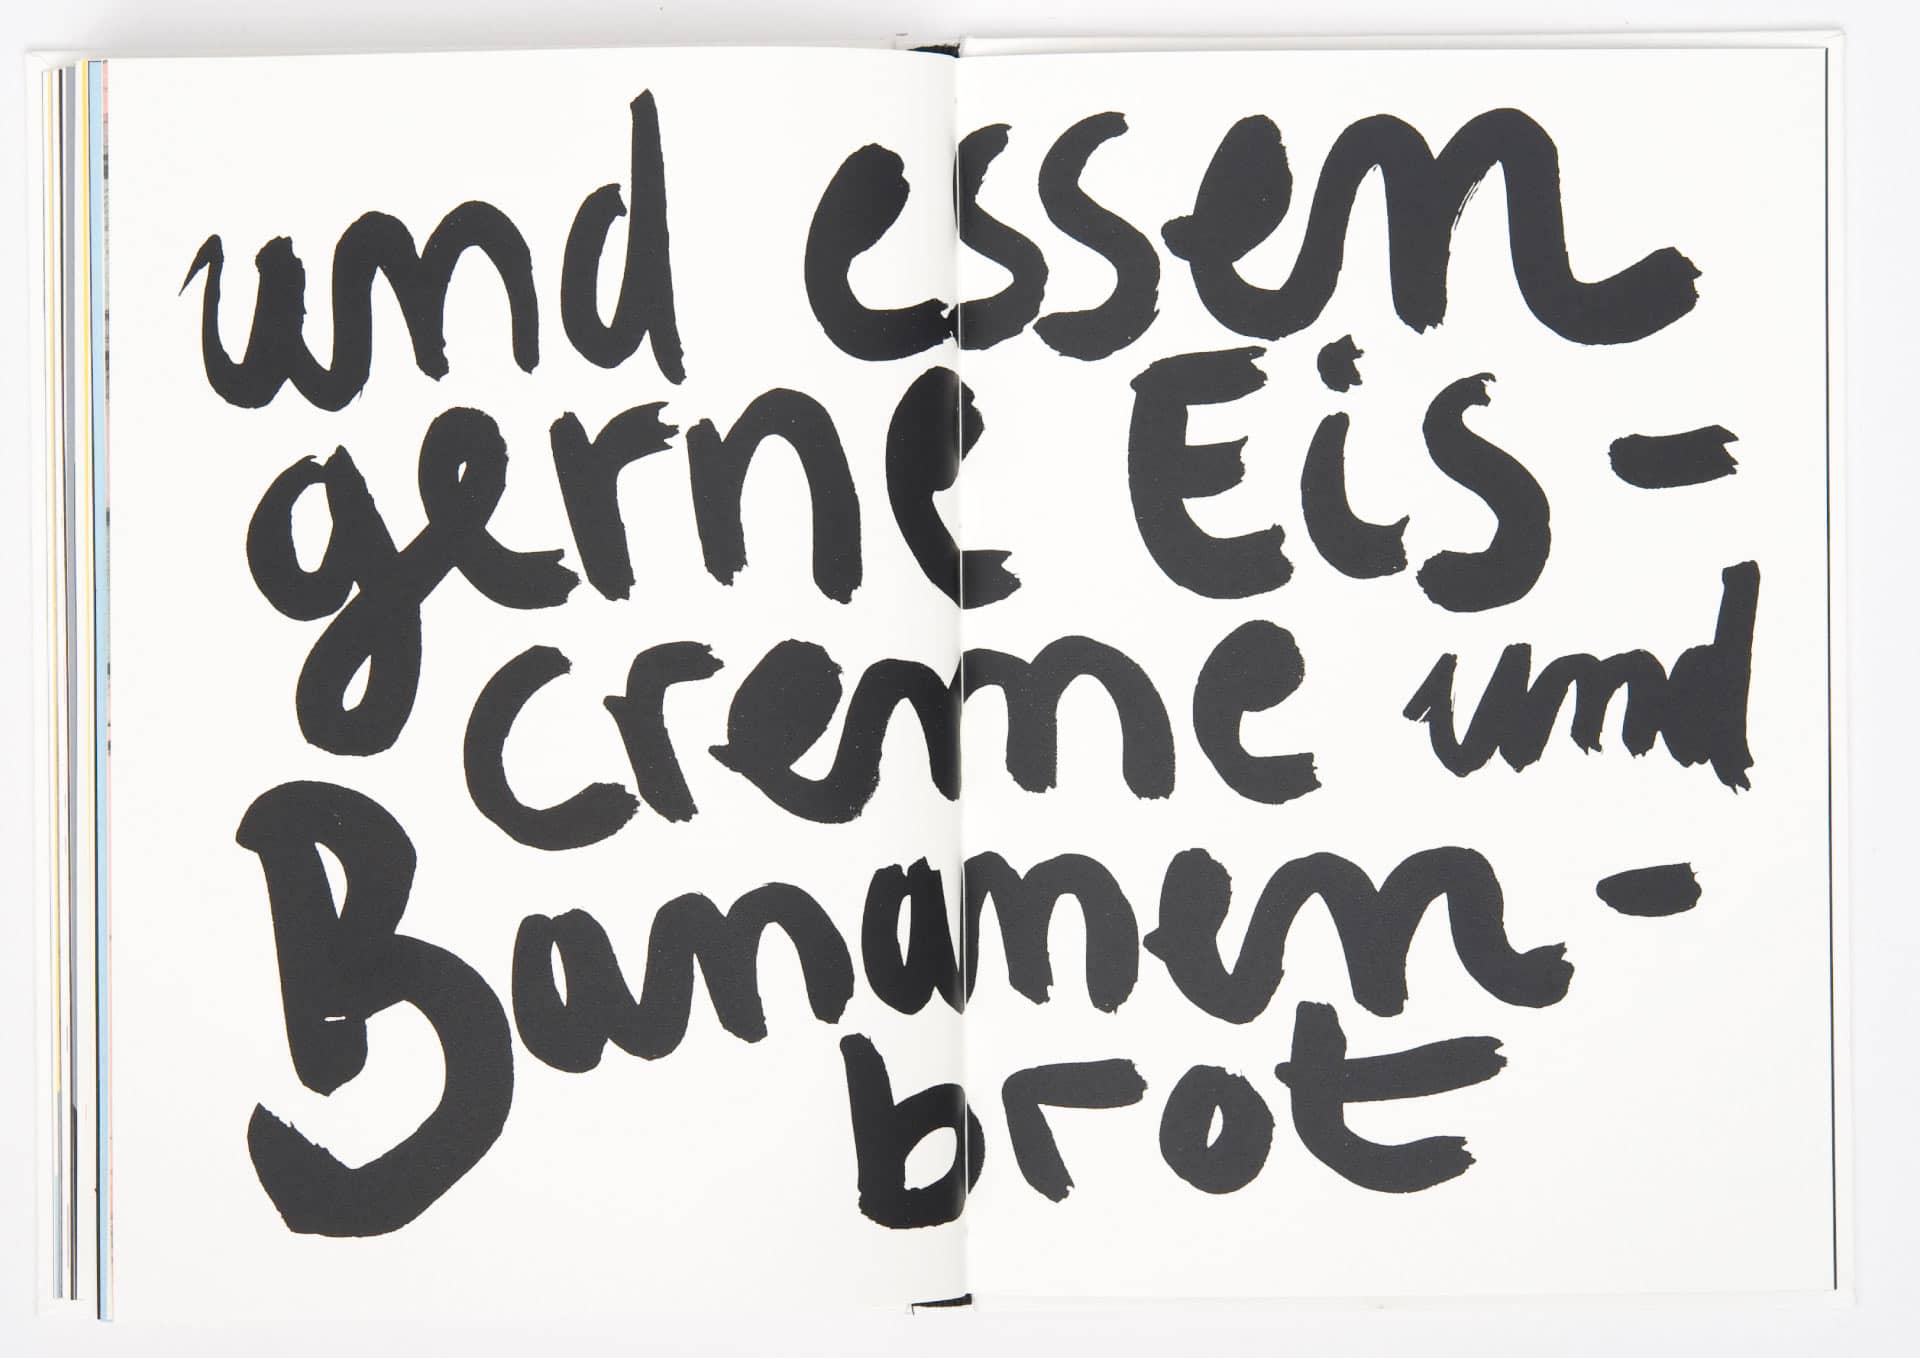 und essen
gerne Eis-
creme und
Bananen-
brot